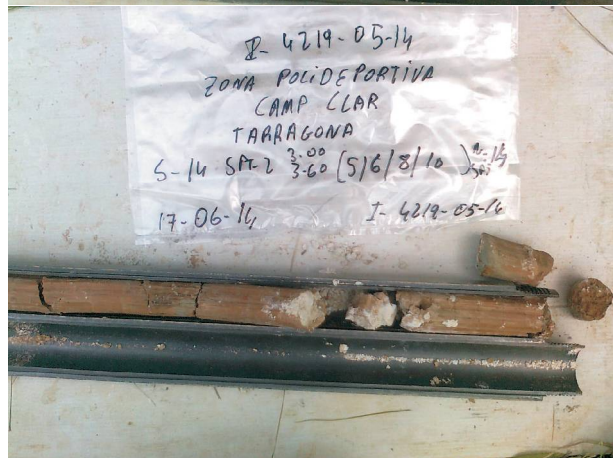 I-4219-05-14
ZONA POLIDEPORTIVA
CAMP CLAR
TARRAGONA
S-14 SPT-2 3.00 3.60 (5/6/8/10)
17-06-14 I-4219-05-14